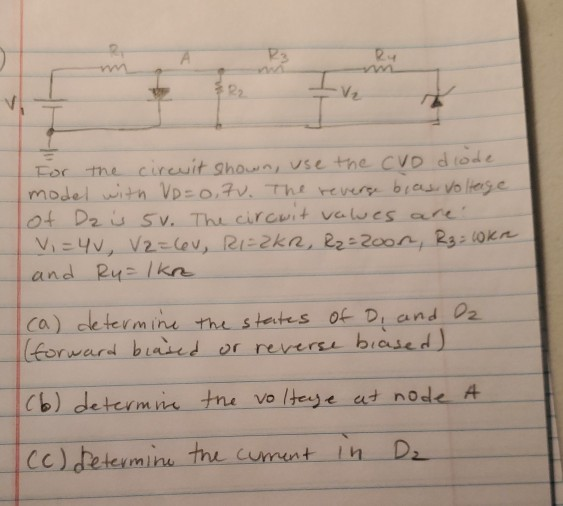 R1 A R3 R4
V1 R2 V2
For the circuit shown, use the CVD diode
model with VD=0.7V. The reverse bias voltage
of D2 is 5V. The circuit values are:
V1=4V, V2=6V, R1=2KΩ, R2=200Ω, R3=10KΩ
and R4=1KΩ
(a) determine the states of D1 and D2
(forward biased or reverse biased)
(b) determine the voltage at node A
(c) Determine the current in D2